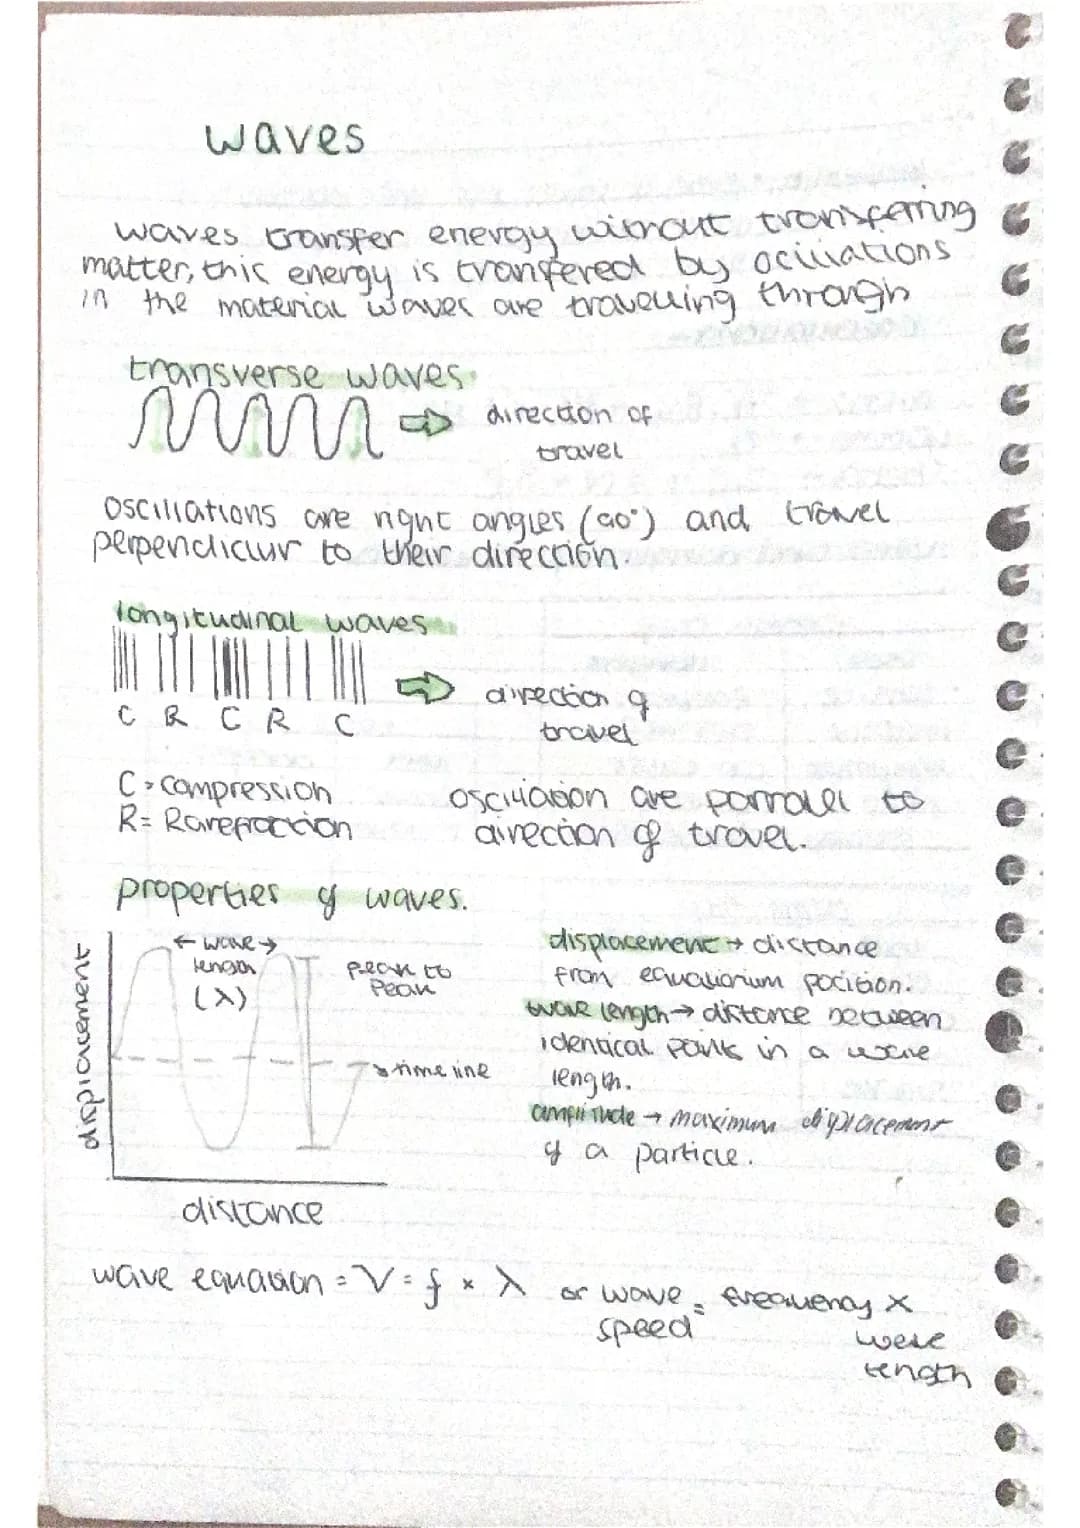 waves
waves transfer energy without transferring
matter, this energy is tranfered by ocillations
in the material waves are travelling through
transverse waves
direction of
travel
oscillations are right angles (90°) and travel
perpendiculur to their direction.
longitudinal waves
direction of
travel
C R C R C
C = compression
R = Rarefraction
oscillation are parrallel to
direction of travel.
properties of waves.
displacement
← wave →
length
(λ)
peak to
peak
time line
distance
displacement → distance
from equalibrium position.
wave length → distance between
identical points in a wave
length.
amplitude → maximum displacement
of a particle.
wave equation = V = f × λ or wave speed = frequency × wave length